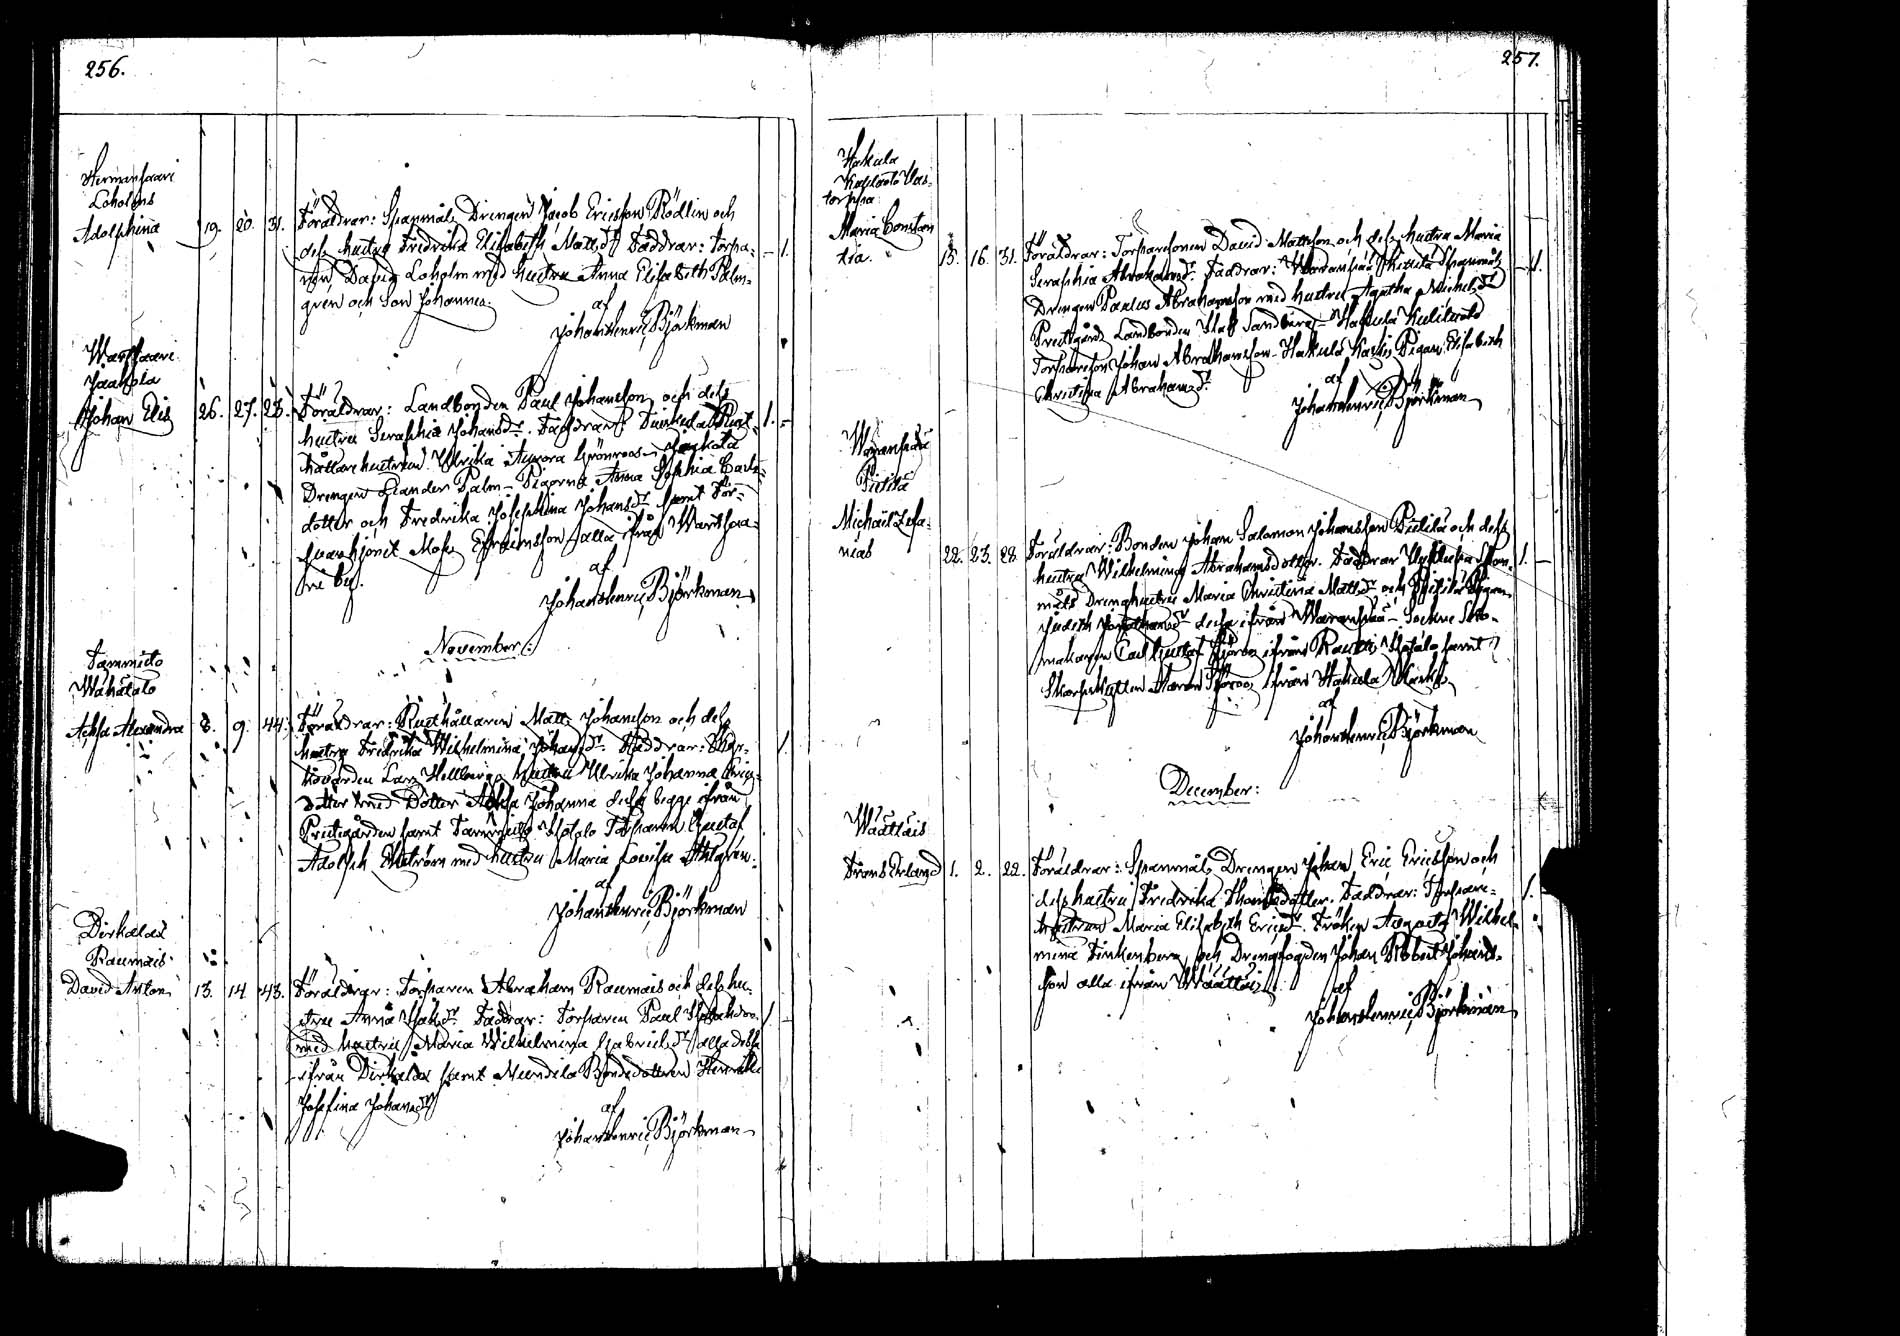 256.
Hermansaari
Loholms
Adolphina 19. 20. 31. Föräldrar: Spanmåls Drengen Jacob Ericsson Rödlin och
dess hustru Fredrika Elisabeth Matts dr Faddrar: Torpa- — 1.
ren David Loholm med hustru Anna Elisabeth Palm-
gren och Son Johannes.
af
Johan Henric Björkman
Wartsaari
Jaakola
Johan Elis 26. 27. 23. Föräldrar: Landbonden Paul Johansson och dess
hustru Seraphia Johans dr. Faddrar: Rust- 1. —
hållarehustrun Ulrika Aurora Grönroos
Drengen Leander Palm - Pigorna Anna Sophia Carls-
dotter och Fredrika Josephina Johans dr samt För-
svarshjonet Efraimsson alla ifrån Wartsaa-
ri by.
af
Johan Henric Björkman
November:
Tammisto
Wähätalo
Achsa Alexandra 8. 9. 44. Föräldrar: Rusthållaren Matts Johansson och dess
hustru Fredrika Wilhelmina Johans dr. Faddrar: Kyr-
kovärden Lars Hellbergs hustru Ulrika Johanna Erics- 1.
dotter med Dotter Achsa Johanna dessa begge ifrån
Prestgården samt Tammisto Ylötalo Torparen Gustaf
Adolph Ekström med hustru Maria Lovisa Ahlgren.
af
Johan Henric Björkman
Dirkalax
Raumais
David Anton 13. 14. 43. Föräldrar: Torparen Abraham Raumais och dess hu-
stru Anna dr. Faddrar: Torparen Paul 1. —
med hustru Maria Wilhelmina Gabriels dr alla dessa
ifrån Dirkalax samt Mundila Bondedottren Henrika
Josefina Johans dr
af
Johan Henric Björkman
257.
Hakula
Kaslaolo Uas-
torppa
Maria Constan
tia. 15. 16. 31. Föräldrar: Torparesonen David Mattsson och dess hustru Maria
Seraphia Abrahams dr. Faddrar: Waranpää Spanmåls — 1.
Drengen Paulus Abrahamsson med hustru Agatha Michels dr
Prestgårds Landbonden Sandberg - Hakula
Torpareson Johan Abrahamsson - Hakula Pigan Elisabeth
Christina Abrahams dr.
af
Johan Henric Björkman
Waranpää
Pietilä
Michaël Zefa-
nias 22. 23. 28. Föräldrar: Bonden Johan Salomon Johansson Pietilä och dess
hustru Wilhelmina Abrahamsdotter. Faddrar Span- 1. —
måls Drenghustru Maria Christina Matts dr och Pietilä Pigan
Judith dr dessa ifrån Waranpää - Sockne Sko-
makaren Carl Gustaf ifrån samt
Skarpskytten ifrån Hakula
af
Johan Henric Björkman
December:
Wäätläis
Frans Erland 1. 2. 22. Föräldrar: Spanmåls Drengen Johan Eric Ericsson och
dess hustru Fredrika Thomasdotter. Faddrar: Torpare- 1.
hustrun Maria Elisabeth Erics dr. Fröken Augusta Wilhel-
mina Finkenberg och Drengfogden Johan Robert Johans-
son alla ifrån Wäätläis
af
Johan Henric Björkman